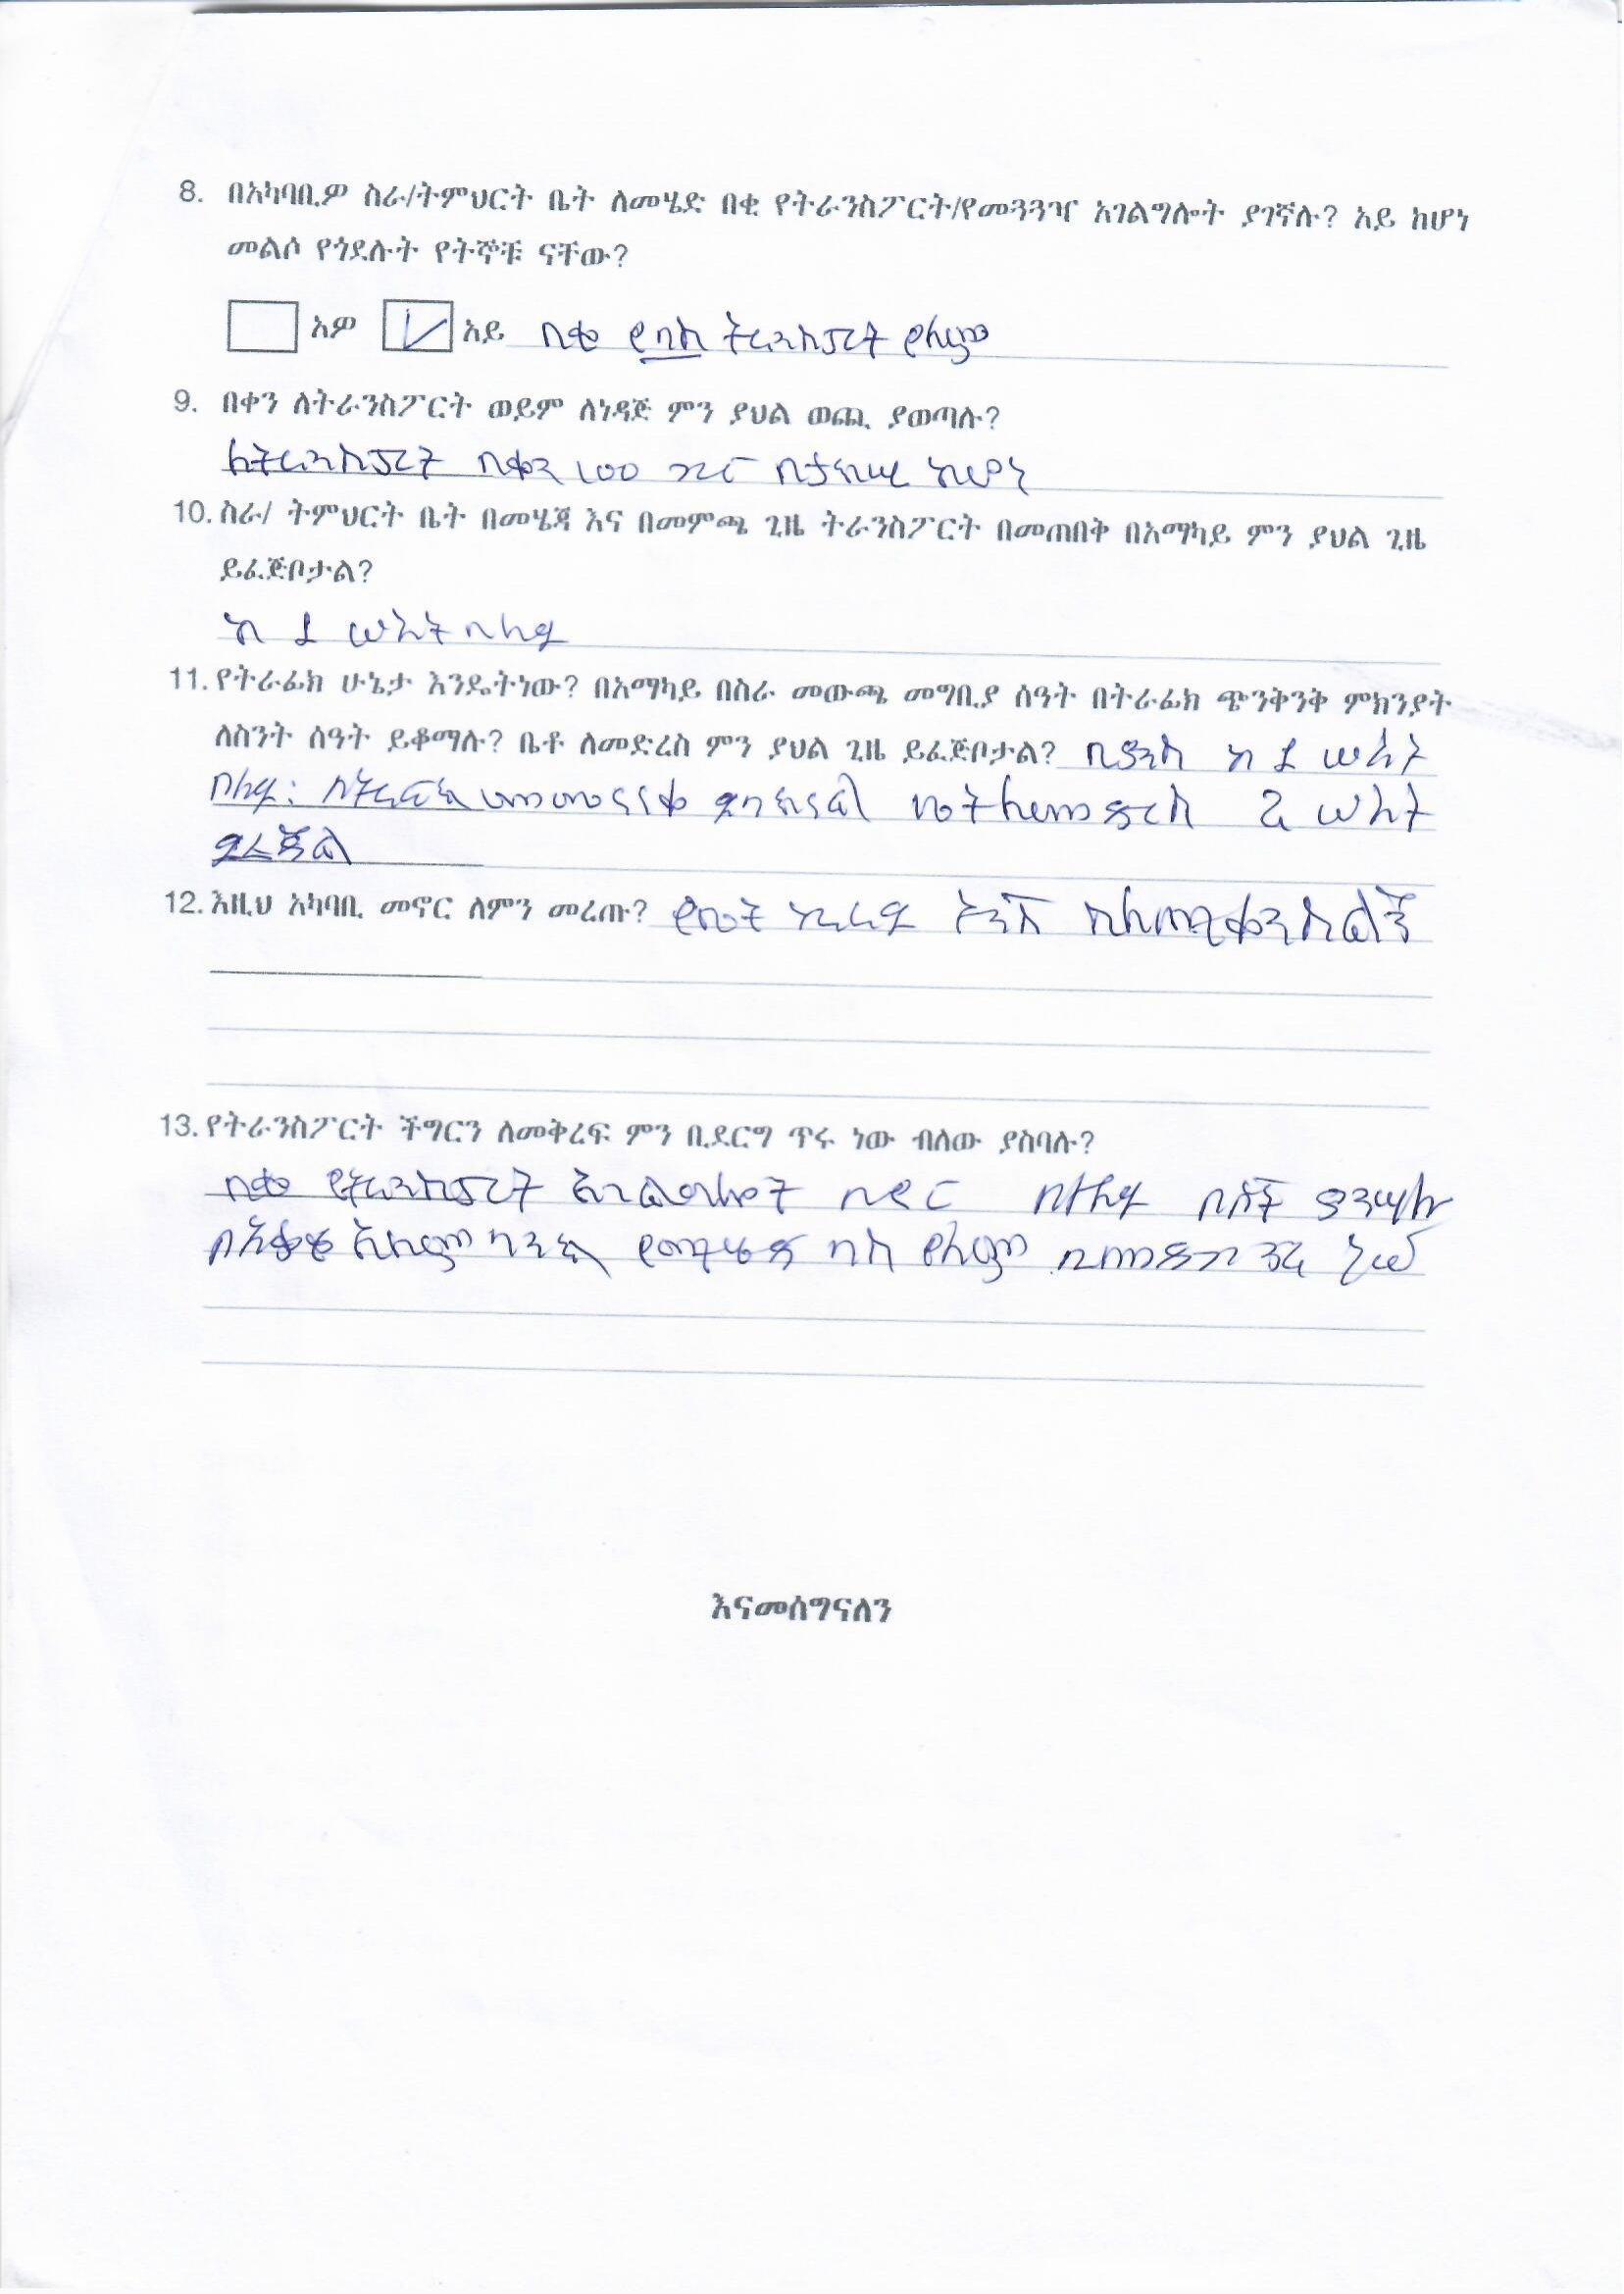 8. በአካባቢዎ ስራ/ትምህርት ቤት ለመሄድ በቂ የትራንስፖርት/የመጓጓዣ አገልግሎት ያገኛሉ? አይ ከሆነ
መልሶ የጎደሉት የትኞቹ ናቸው?
አዎ አይ በቂ የባስ ትራንስፖርት የለም
9. በቀን ለትራንስፖርት ወይም ለነዳጅ ምን ያህል ወጪ ያወጣሉ?
ለትራንስፖርት በቀን 100 ብር በታክሲ ከሆነ
10. ስራ/ ትምህርት ቤት በመሄጃ እና በመምጫ ጊዜ ትራንስፖርት በመጠበቅ በአማካይ ምን ያህል ጊዜ
ይፈጅቦታል?
ከ 1 ሠአት በላይ
11. የትራፊክ ሁኔታ እንዴትነው? በአማካይ በስራ መውጫ መግቢያ ሰዓት በትራፊክ ጭንቅንቅ ምክንያት
ለስንት ሰዓት ይቆማሉ? ቤቶ ለመድረስ ምን ያህል ጊዜ ይፈጅቦታል? ቢያንስ ከ 1 ሠአት
በላይ: በትራፊክ መጨናነቅ ቤት ለመድረስ 2 ሠአት
ይፈጃል
12. እዚህ አካባቢ መኖር ለምን መረጡ? የቤት ኪራይ ትንሽ ስለሚቀንስልኝ
13. የትራንስፖርት ችግርን ለመቅረፍ ምን ቢደርግ ጥሩ ነው ብለው ያስባሉ?
በቂ የትራንስፖርት አገልግሎት ቢኖር በተለይ
የሚሄድ ባስ የለም ቢመደብ ጥሩ ነው
እናመሰግናለን